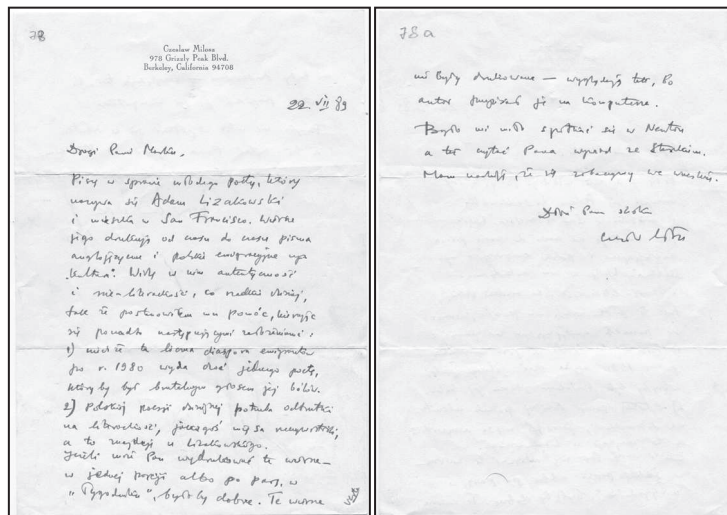 78
Czesław Miłosz
978 Grizzly Peak Blvd.
Berkeley, California 94708
22 VII 89
Drogi Panie Marku,
Piszę w sprawie młodego poety, który
nazywa się Adam Lizakowski
i mieszka w San Francisco. Wiersze
jego drukują od czasu do czasu pisma
anglojęzyczne i polskie emigracyjne np.
"Kultura". Widzę w nim autentyczność
i nie-literackość, co rzadkie dzisiaj,
tak że postanowiłem mu pomóc, kierując
się ponadto następującymi
1) może ta liczna diaspora emigrantów
po r. 1980 wyda choć jednego poetę,
który by był brutalnym głosem jej bólów.
2) Polskiej poezji dzisiejszej potrzeba odtrutki
na literackość, jakiegoś
a to znajduję u Lizakowskiego.
Jeżeli może Pan wydrukować te wiersze –
w jednej porcji albo po parę, w
"Tygodniku", byłoby dobrze. Te wiersze
78a
nie były drukowane – wyglądają tak, bo
autor przepisał je na komputerze.
Było mi miło spotkać się w
a też czytać Pana wywiad ze
Mam nadzieję, że się zobaczymy we wrześniu.
Dłoń Pana ściskam
Czesław Miłosz